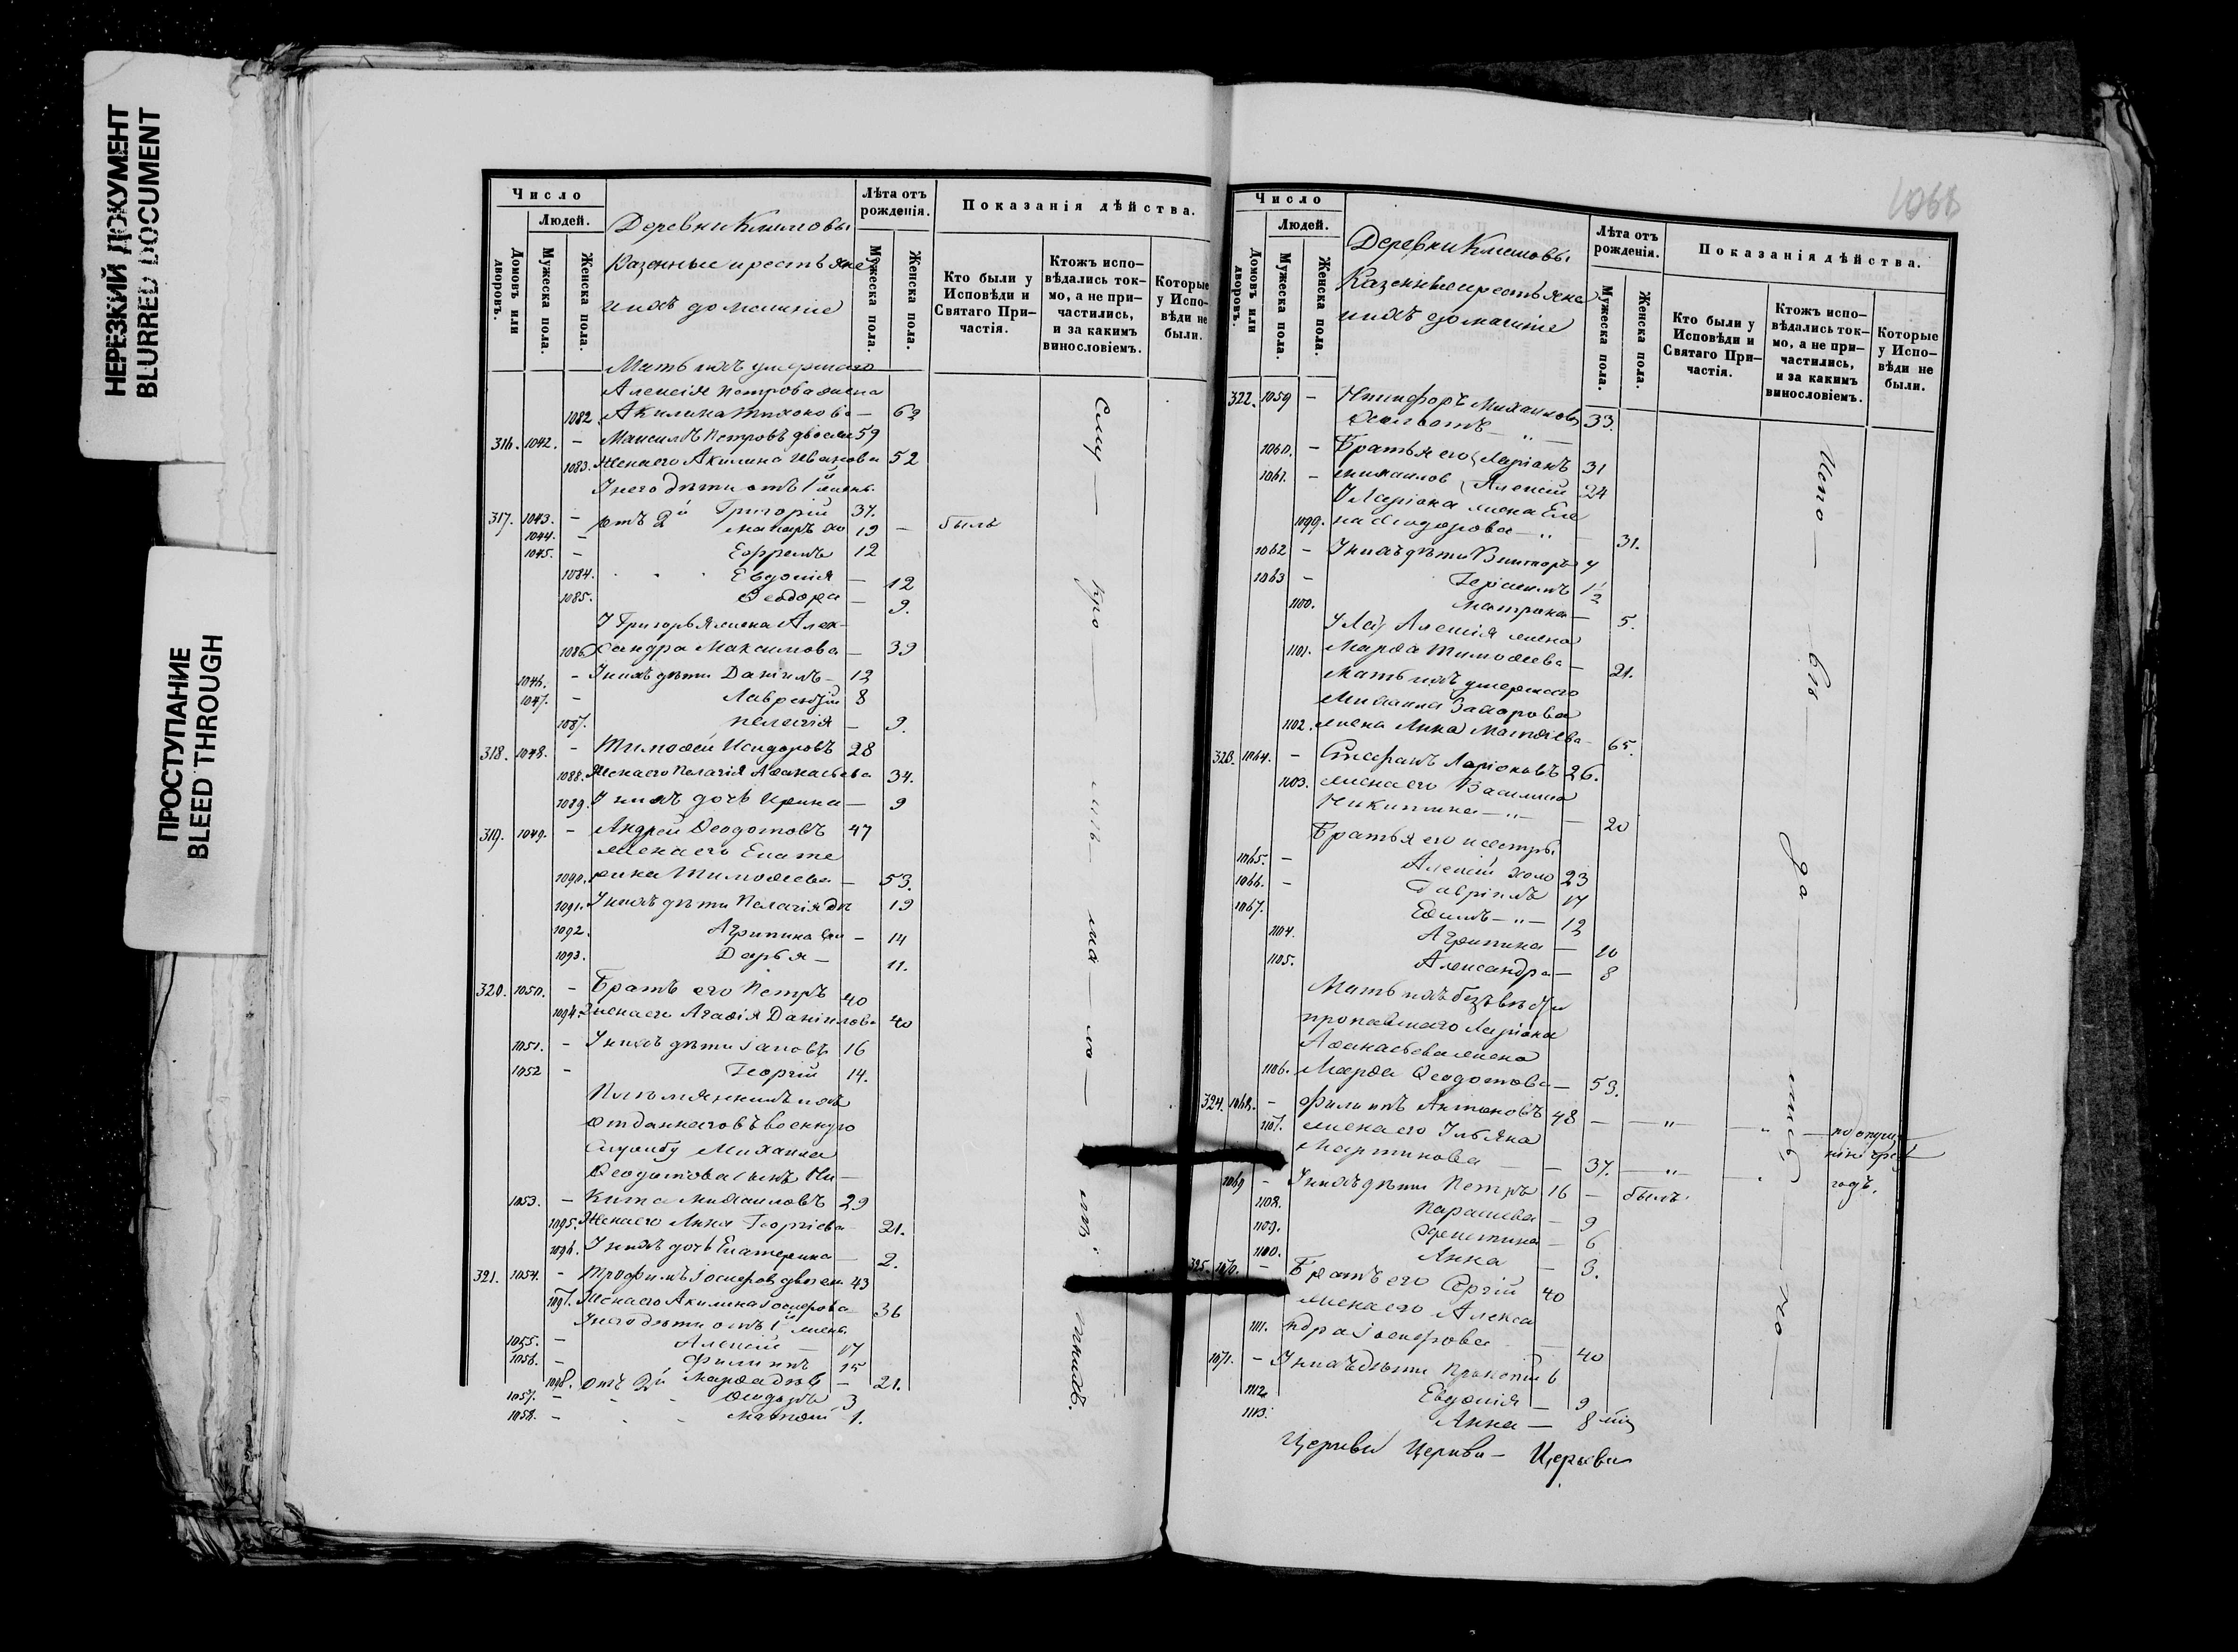 НЕРЕЗКИЙ ДОКУМЕНТ
BLURRED DOCUMENT
ПРОСТУПАНИЕ
BLEED THROUGH
Число
Людей.
Домовъ или дворовъ.
Мужеска пола.
Женска пола.
Деревни Климовы
Казенные крестьяне
и ихъ домашніе
Лѣта отъ рожденія.
Мужеска пола.
Женска пола.
Показанія дѣйства.
Кто были у Исповѣди и Святаго При-частія.
Ктожъ испо-вѣдались ток-мо, а не при-частились, и за какимъ винословіемъ.
Которые у Испо-вѣди не были.
Мать ихъ умершаго
Алексія Петрова жена
1082. Акилина — 62
316. 1042. — Петровъ 59
1083. Жена его Акилина Иванова 52
У него дѣти отъ 1й жены
317. 1043. — Григорій 37.
1044. — отъ 2й 19 — былъ
1045. — Ефремъ 12
1084. Евдокія — 12
1085. Ѳеодора — 9.
У Григорья жена Алек-
1086. сандра Максимова — 39
1046. — У нихъ дѣти Даніилъ — 12
1047. — Лаврентій 8
1087. Пелагія — 9.
318. 1048. — Тимоѳей Исидоровъ 28
1088. Жена его Пелагія Аѳанасьева 34.
1089. У нихъ дочь Ирина — 9
319. 1049. — Андрей Ѳеодотовъ 47
жена его Екате
1090. рина Тимоѳеева — 53.
1091. У нихъ дѣти Пелагія 19
1092. Агрипина — 14
1093. Дарья — 11.
320. 1050. — Братъ его Петръ 40
1094. Жена его Агаѳія Даніилова 40
1051. — У нихъ дѣти Іаковъ 16
1052 — Георгій 14.
Племянникъ ихъ
отданнаго въ военную
службу Михаила
Ѳеодотова сынъ Ни—
1053. — кита Михаиловъ 29
1095. Жена его Анна Георгіева 21.
1096. У нихъ дочь Екатерина — 2.
321. 1054. — Трофимъ Іосифовъ 43
1097. Жена его Акилина Іосифова 36
У него дѣти отъ 1й жены
1055. — Алексій — 17
1056. — Филиппъ 15
1098. отъ 2й Марѳа — 21.
1057. — Ѳеодоръ 3
1058. — Матѳій 1.
Число
Людей.
Домовъ или дворовъ.
Мужеска пола.
Женска пола.
Деревни Климовы
Казенные крестьяне
и ихъ домашніе
Лѣта отъ рожденія.
Мужеска пола.
Женска пола.
Показанія дѣйства.
Кто были у Исповѣди и Святаго При-частія.
Ктожъ испо-вѣдались ток-мо, а не при-частились, и за какимъ винословіемъ.
Которые у Испо-вѣди не были.
322. 1059 — Никифоръ Михаиловъ
холостъ — 33.
1060. — Братья его Ларіонъ 31
1061. — Михаилов Алексій 24
У Ларіона жена Еле
1099. на Ѳеодорова — 31.
1062 — У нихъ дѣти Викторъ 4
1063 — Герасимъ 1/2
1100. Матрона — 5.
У Алексія жена
1101. Марѳа Тимоѳеева — 21.
Мать ихъ умершаго
Михаила Захарова
1102. жена Анна Матѳіева 65.
323. 1064. — Стефанъ Ларіоновъ 26.
1103. жена его Василиса
Никитина — 20
Братья его и сестры
1065. — Алексій холо 23
1066. — Гавріилъ 17
1067. Ефимъ — 12
1104. Агрипина — 10
1105. Александра — 8
Мать ихъ безъ вѣсти
пропавшаго Ларіона
Аѳанасьева жена
1106. Марѳа Ѳеодотова — 53.
324. 1068. — Филиппъ Антоновъ 48
1107. жена его Ульяна
Мартинова — 37.
1069 — У нихъ дѣти Петръ 16 — былъ.
годъ.
1108. Парасковья — 9
1109. Христина — 6
1110. Анна — 3.
325. 1070. — Братъ его Сергій 40
жена его Алекса
1111. ндра Іосифова 40
1071. — У нихъ дѣти Прокопій 6
1112 Евдокія — 9
1113. Анна — 8
Церкви Церкви — Церкви